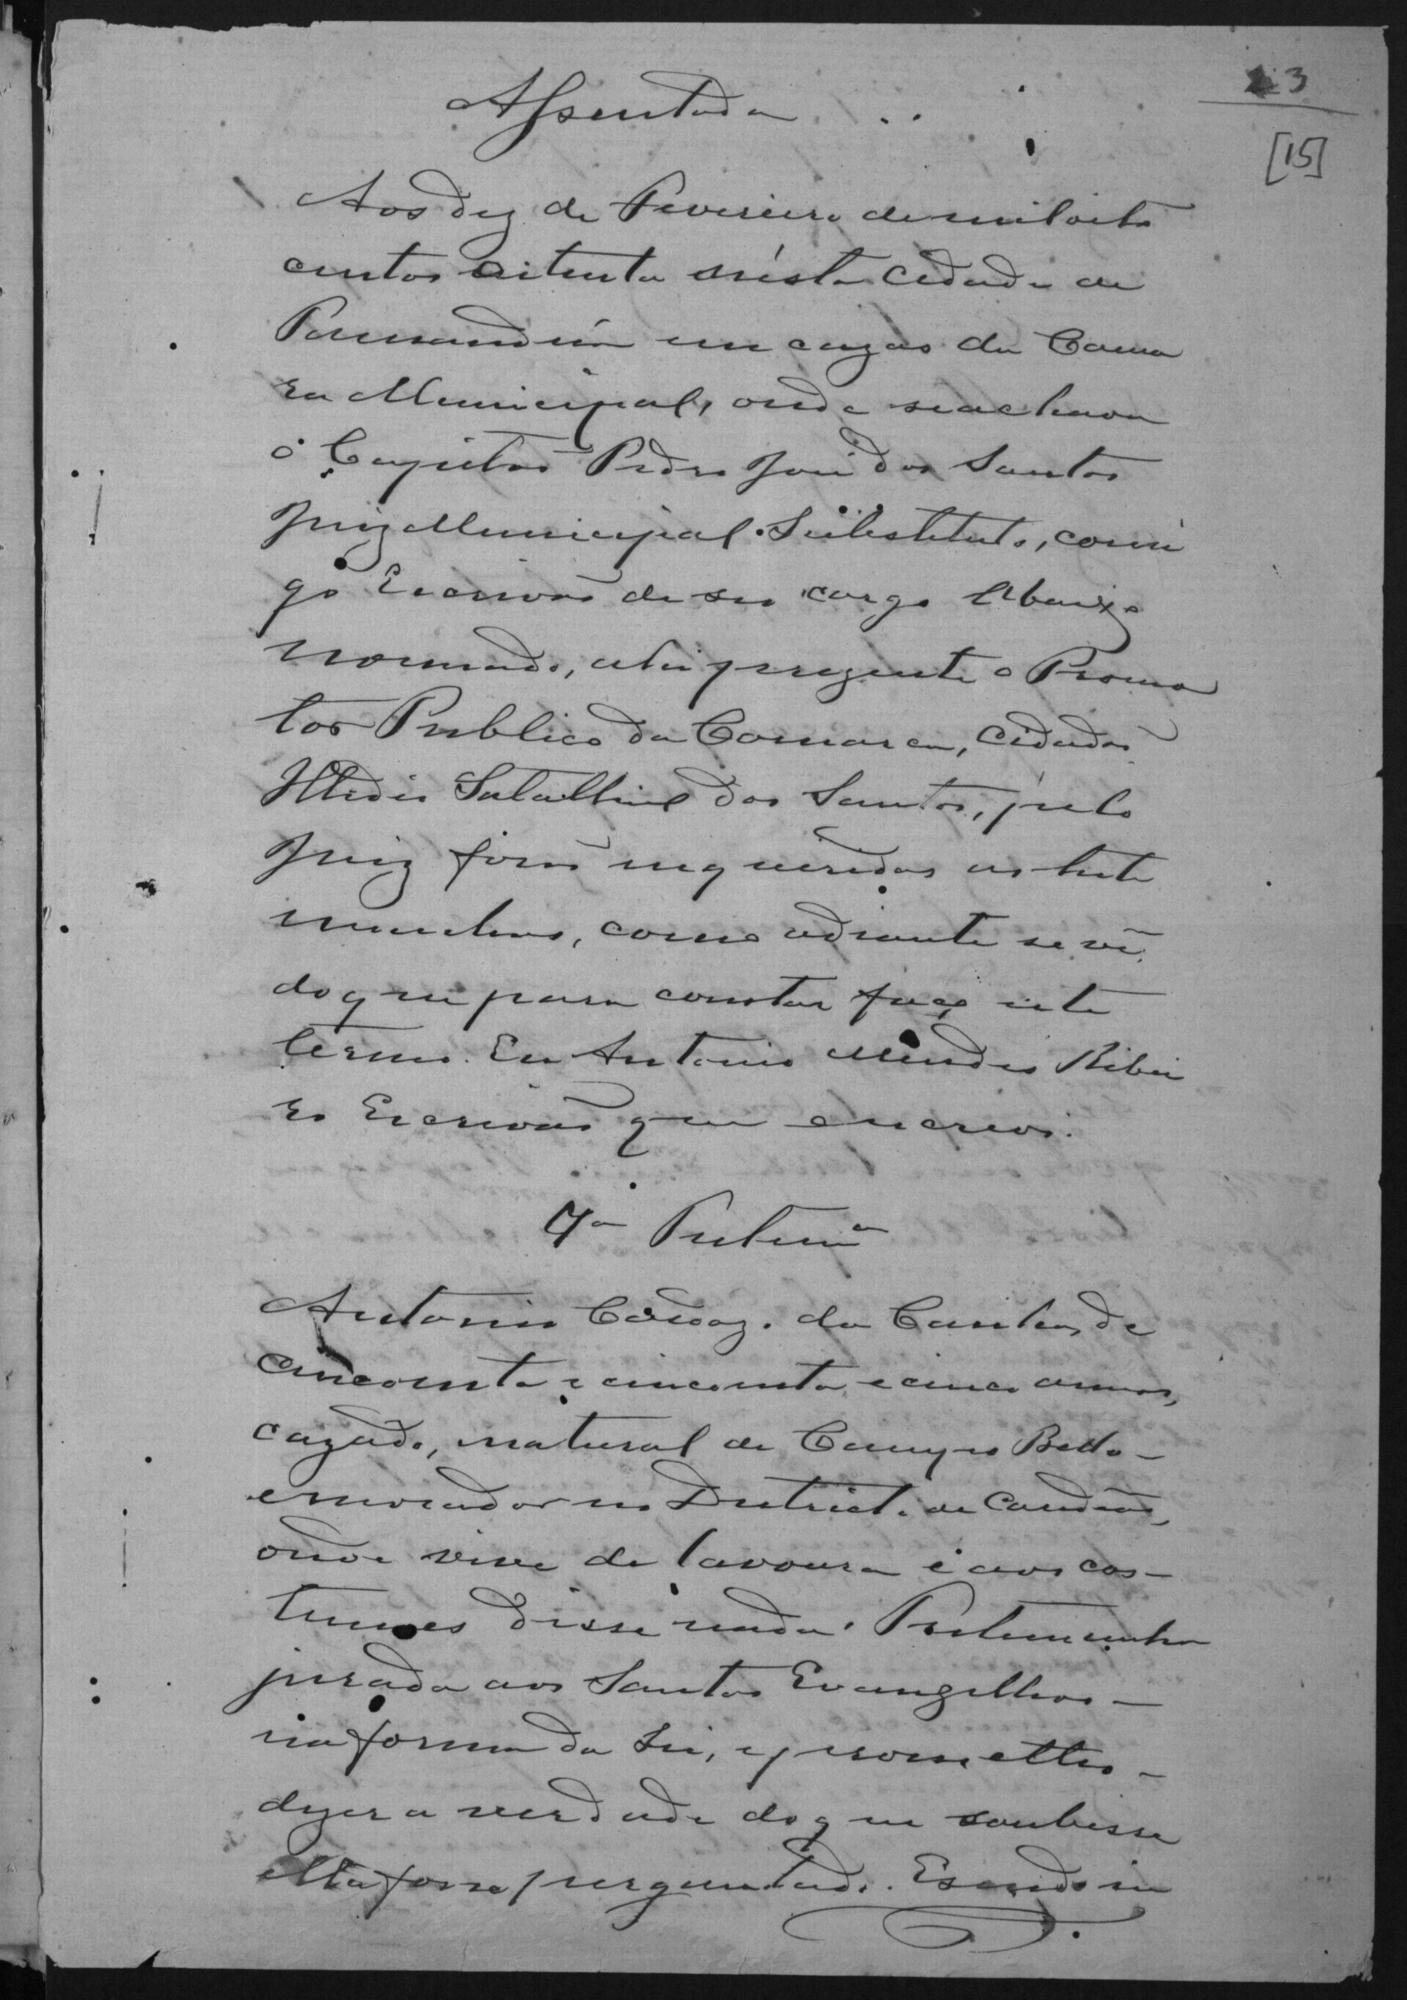 23
[15]
Assentada
Aos dez de Fevereiro de mil oito
centos oitenta nésta Cidade de
em cazas da Cama
ra Municipal, onde se achava
o Capitão Pedro José dos Santos
Juiz Municipal Substituto, comi
go Escrivão de seu cargo abaixo
nomeado, ahi prezente o Promo
tor Publico da Comarca, Cidadão
dos Santos, pelo
Juiz forão inqueridas as teste
munhas, como adiante se vê,
do que para constar faço este
termo. Eu Antonio Mendes Ribei
ro Escrivão que escrevi.
7ª Testemª
Antonio da Cunha, de
cincoenta e cincoenta e cinco annos,
cazado, natural de Campo Bello
e morador no Districto de Candeas,
onde vive de lavoura e aos cos-
tumes disse nada. Testemunha
jurada aos Santos Evangelhos
na forma da Lei, e prometteo
dizer a verdade do que soubesse
e lhe fosse perguntado. E sendo in